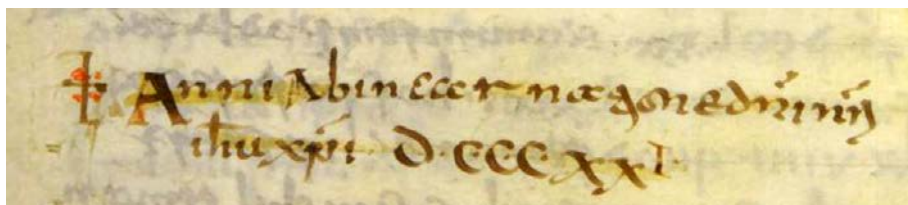 † Anni Ab incarnatione dni nri
ihu xpi D·CCC XXI·